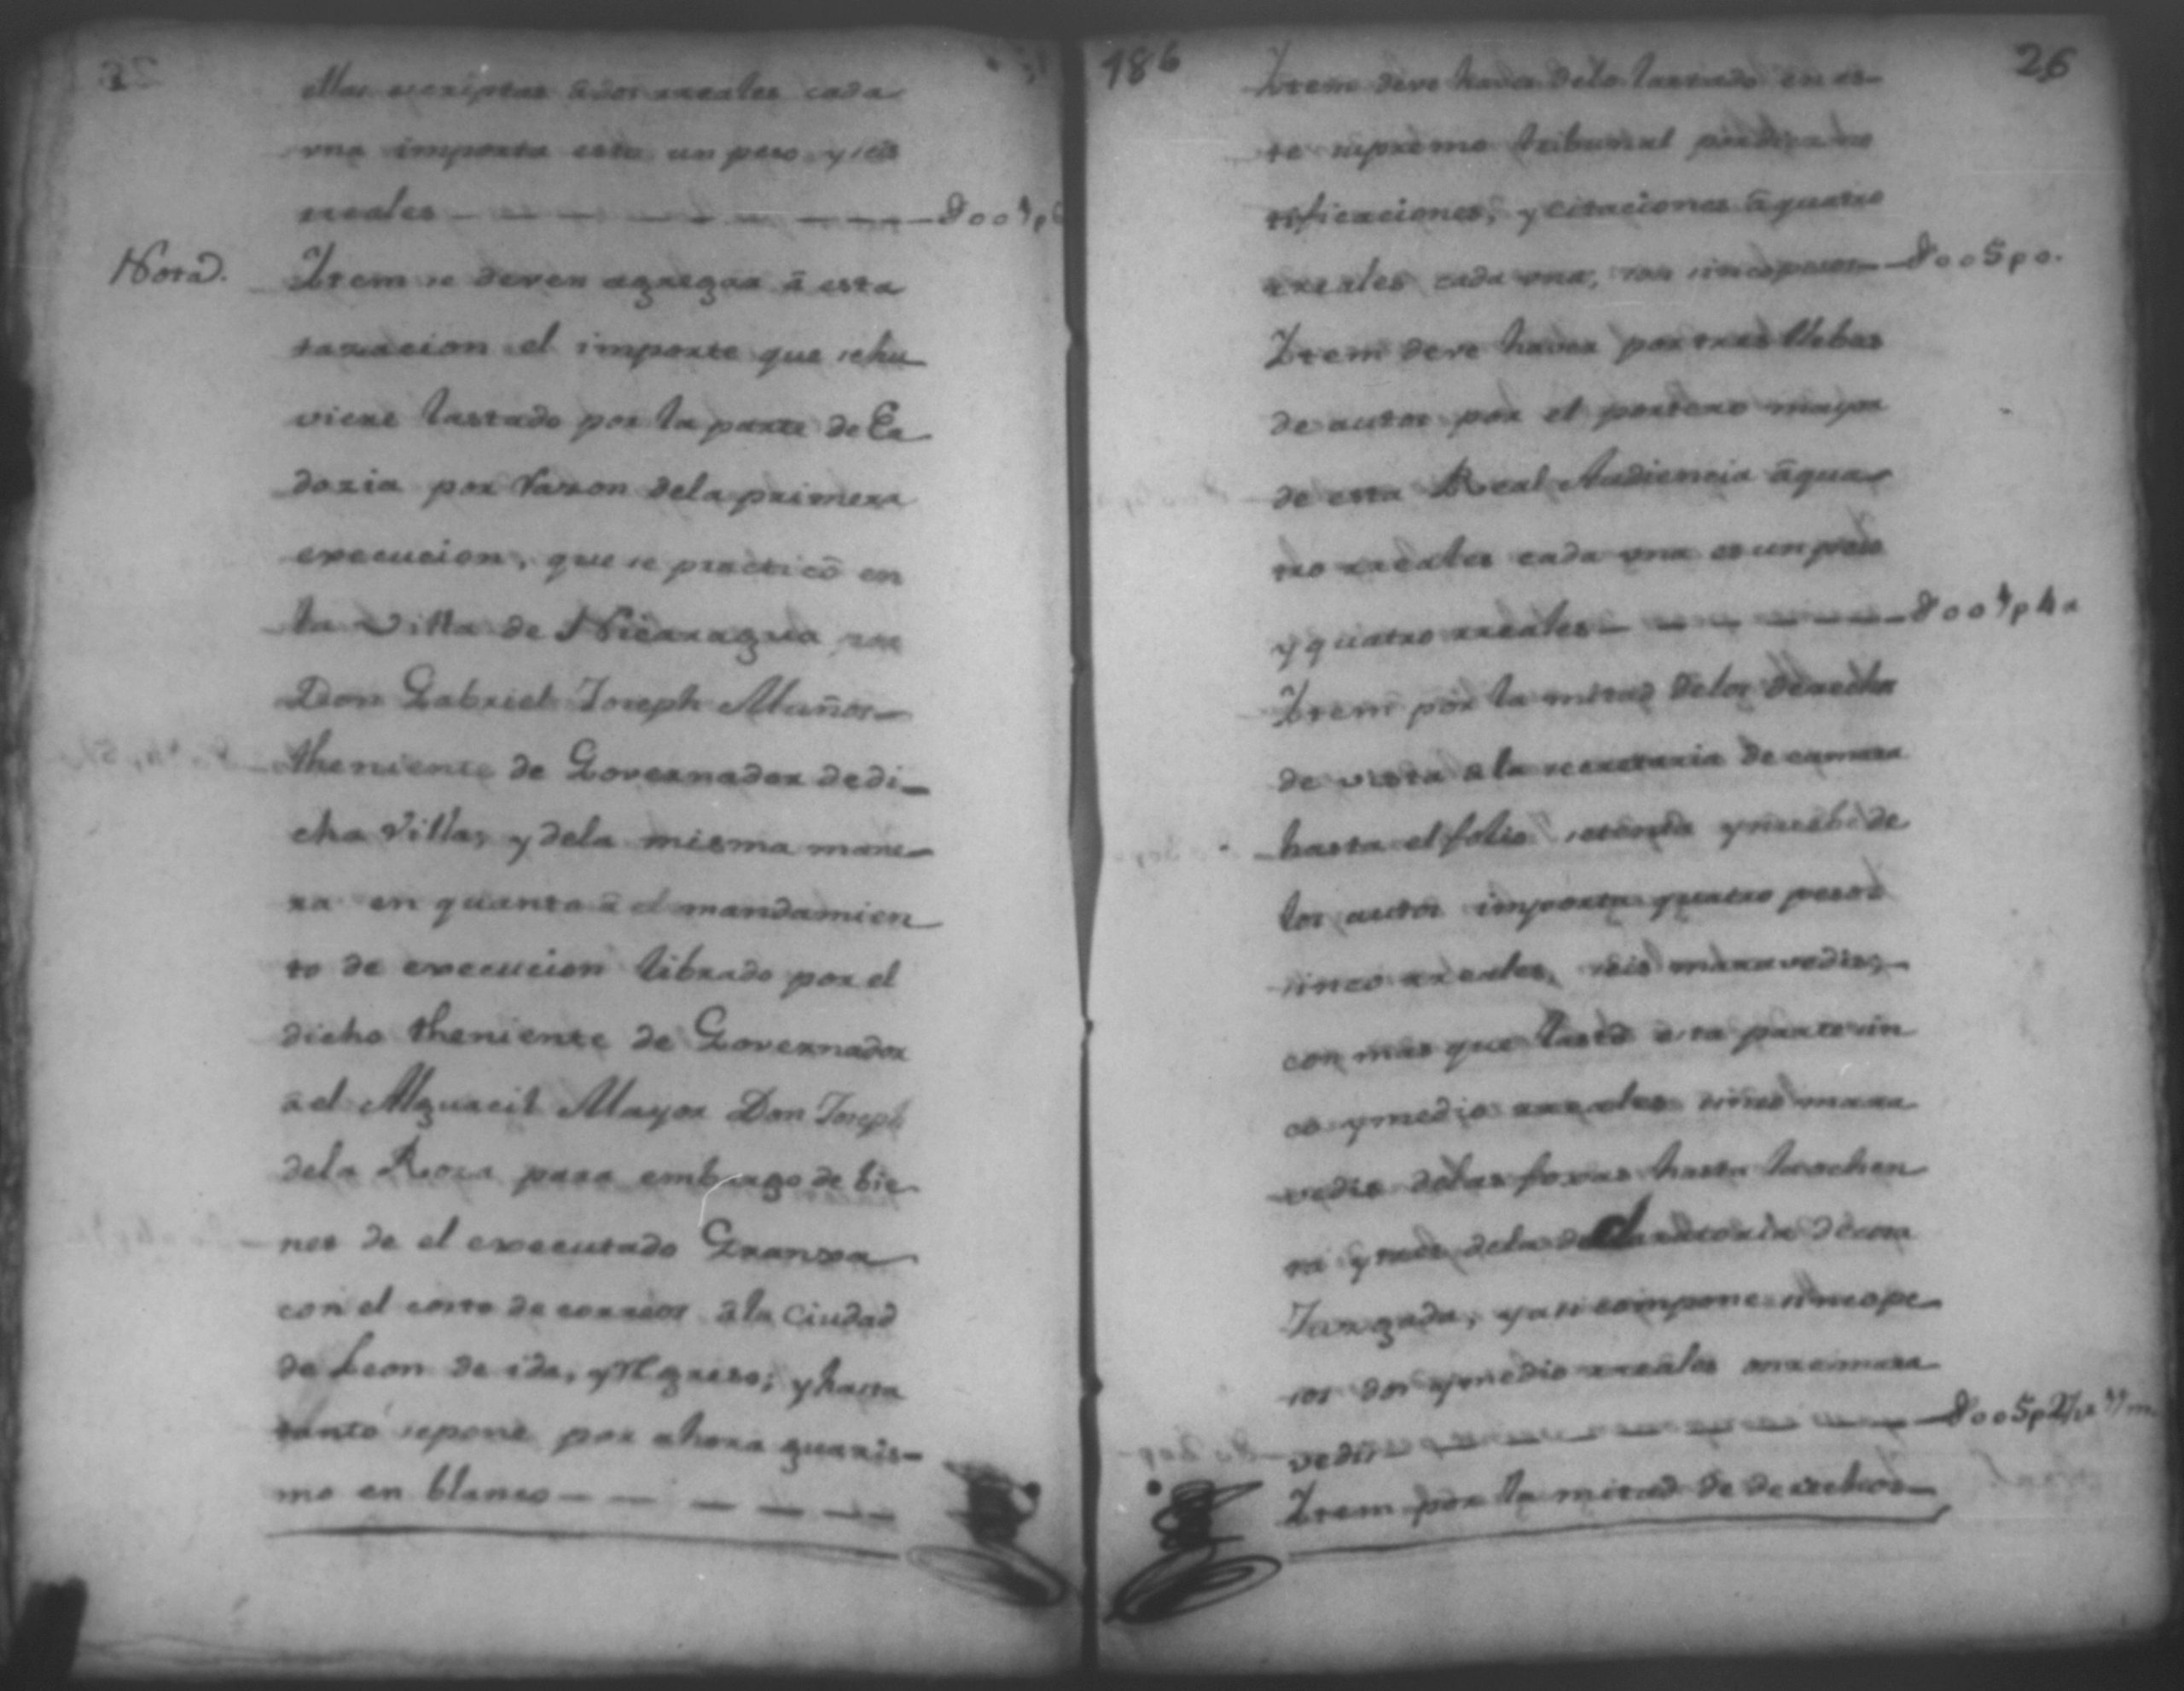 ellas escriptas â dos rreales cada
vna importa esta un peso y seis
rreales — — — — — — — d001p6
Nota.
Ytem se deven agregar â esta
tasacion el importe que se hu
viere lastado por la parte de Ca
doria por rason dela primera
execucion, que se practicô en
la Villa de Nicaragua por
Don Gabriel Joseph Muños
theniente de Governador de di
cha Villa, y dela misma mane
ra en quanto â el mandamien
to de execucion librado por el
dicho theniente de Governador
â el Alguacil Mayor Don Joseph
dela Rosa para embargo de bie
nes de el executado Granxa
con el costo de correos â la Ciudad
de Leon de ida, y regreso; y hasta
tanto se pone por ahora guaris
mo en blanco — — — — — —
186
26
Ytem deve haver delo lastado en es
te supremo tribunal por diez no
tificaciones, y citaciones â quatro
rreales cada vna, son sinco pesos — d005p0.
Ytem deve haver por tres llebas
de autos por el portero mayor
de esta Real Audiencia â qua
tro rreales cada vna es un peso
y quatro rreales — — — — — d001p4r
Ytem por la mitad delos derechos
de vista â la secretaria de camara
hasta el folio setenta y nuebe de
los autos importa quatro pesos
sinco rreales, seis maravedis,
con mas que lastô esta parte sin
co y medio rreales sinco mara
vedis delas foxas hasta la ochen
ta y tres dela declaratoria de cosa
Jusgada, y asi compone sinco pe
sos dos y medio rreales onze mara
vedis — — — — — — d005p2½r 11m
Ytem por la mitad de derechos